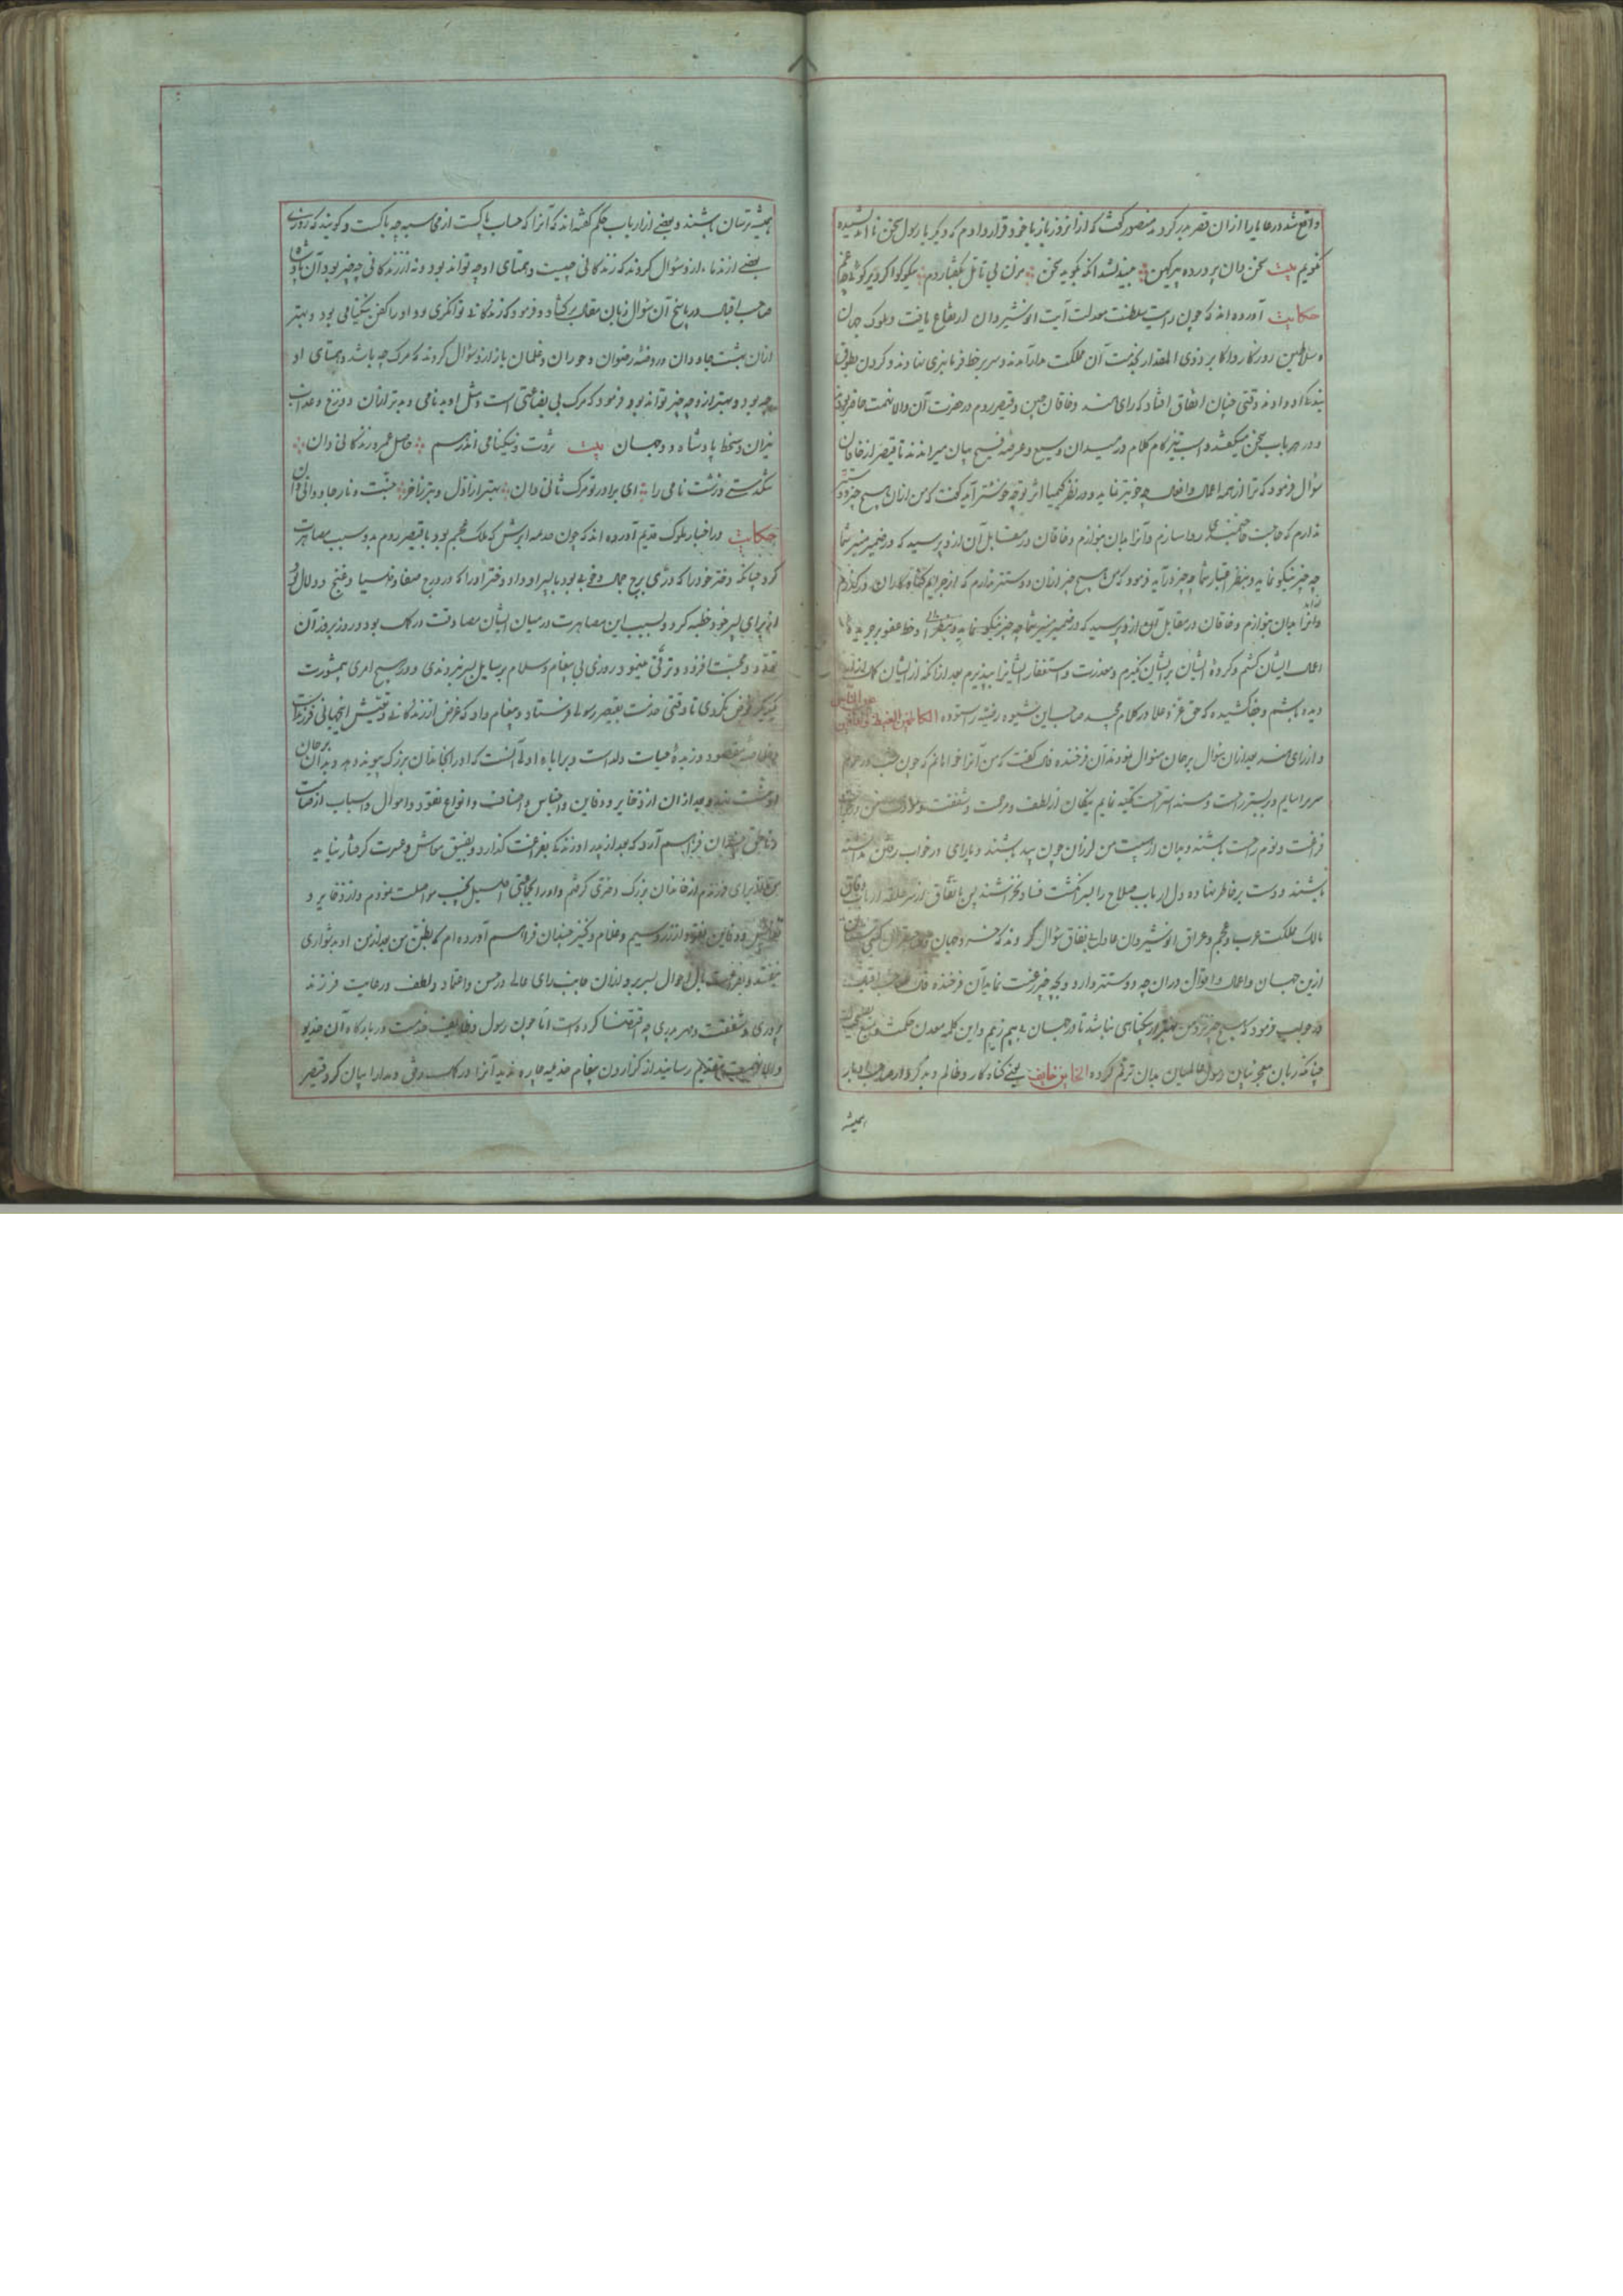 واقع شد و رعایا را از ان قصر بدر کردند منصور گفت که از انروز باز با خود قرار دادم که دیگر با رسول سخن نا اندیشیده
نگویم بیت سخن دان پرورده پیر کهن بیندیشد آنکه بگوید سخن مزن بی تامل بگفتار دم نیکو گو اگر دیر گوئی چه غم
حکایت آورده اند که چون رایت سلطنت معدلت آیت انوشیروان ارتفاع یافت و ملوک جهان
و سلاطین روزگار و اکابر ذوی المقدار بخدمت آن مملکت مدار آمدند و سر بر خط فرمانبری نهادند و گردن بطوق
بندگی او دادند وقتی چنان اتفاق افتاد که رای هند و خاقان چین و قیصر روم در حضرت آن والا نهمت حاضر بودند
و در هر باب سخن میگفتند و اسب تیز گام کلام در میدان وسیع و عرصه فسیح بیان میراندند تا قیصر از خاقان
سؤال فرمود که ترا از همه اعمال و افعال چه خوبتر نماید و در نظر کیمیا اثر تو چه خوشتر آید گفت که من ازان هیچ چیز دوستتر
ندارم که حاجت حاجتمندی روا سازم و آنرا بدان بنوازم و خاقان در مقابل آن ازو پرسید که در ضمیر منیر شما
چه چیز نیکو نماید و بنظر اعتبار شما چه چیز در آید فرمود که من هیچ چیز ازان دوستتر ندارم که از جرایم گناه کاران در گذرم
و آنرا بدان بنوازم و خاقان در مقابل آن ازو پرسید که در ضمیر منیر شما چه چیز نیکو نماید و خط عفو بر جریده
اعمال ایشان کشم و کرده ایشان بر ایشان نگیرم و معذرت و استغفار ایشانرا بپذیرم بعد از انکه از ایشان
دیده باشم و جفا کشیده که حق عز و علا در کلام مجید صاحب این شیوه رضیه را ستوده الکاظمین الغیظ والعافین عن الناس
و از رای هند بعد ازان سؤال بر همان منوال نمودند آن فرخنده فال گفت که من آنرا خواهانم که چون شب در حرم
سر براسایم و در بستر راحت و مسند استراحت تکیه نمایم نیکان از لطف و مرحمت و شفقت من در
فراغت و نوم راحت باشند و بدان از هیبت من لرزان چون بید باشند و یارای در خواب رفتن نداشته
باشند و دست بر خاطر نهاده دل ارباب صلاح را بسر انگشت فساد نخراشند پس باتفاق از سر حلقه ارباب وفاق
مالک مملکت عرب و عجم و عراق انوشیروان عادل باتفاق سؤال کردند که خسرو جهان
ازین جهان و اعمال و اقوال دران چه دوستتر دارد و بچه چیز رغبت نماید آن فرخنده فال صاحب اقبال
در جواب فرمود که هیچ چیز نزد من بهتر از بیگناهی نباشد تا در جهان بی بیم زیم و این کلمه معدن حکمت و منبع
چنانکه زبان معجز بیان رسول عالمیان بدان ترنم کرده الخاین خایف یعنی گناه کار و ظالم و بد کردار
همیشه
همیشه ترسان باشند و بعضی از ارباب حکم گفته اند که آنرا که حساب پاکست از محاسبه چه باکست و گویند که روزی
بعضی از ندماء ازو سؤال کردند که زندگانی چیست و همتای او چه تواند بود و به از زندگانی چه چیز بود آن شاه
صاحب اقبال در پاسخ آن سؤال زبان مقال برگشاد و فرمود که زندگانی توانگری بود و او را کفن نیکنامی بود و بهتر
ازان بهشت جاودان و روضه رضوان و حوران و غلمان باز ازو سؤال کردند که مرگ چه باشد و همتای او
چه بود و بهتر ازو چه چیز تواند بود فرمود که مرگ بی بضاعتی است و مثل او بدنامی و بدتر ازان دوزخ و عذاب
نیران و سخط پادشاه دو جهان بیت ثروت و نیکنامی اندر رسم حاصل عمر و زندگانی دان
تنگدستی و زشت نامی را ای برادر تو مرگ ثانی دان بهتر از اول و بتر ز آخر جنت و نار جاودانی دان
حکایت در اخبار ملوک قدیم آورده اند که چون جذیمه ابرش که ملک عجم بود با قیصر روم بدو سبب مصاهرت
کرد چنانکه دختر خود را که دری برج جمال و خوبی بود بپسر او داد و دختر او را که در درج صفا و حیا و غنج و دلال بود
از برای پسر خود خطبه کرد و بسبب این مصاهرت در میان ایشان مصادقت در کمال بود و روز بروز آن
تودد و محبت افزود و ترقی مینمود روزی بی پیغام و سلام و رسایل بسر نبردندی و در هیچ امری بمشورت
یکدیگر خوض نکردی تا وقتی جذیمه بقیصر رسولی فرستاد و پیغام داد که غرض از زندگانی و تعیش اینجهانی فرزندانست
و خلاصه مقصود و زبده حیات ولد است و بر آباء اولی آنست که او را بخاندان بزرگ پیوند دهد
و بعد ازان از ذخایر و دفاین و اجناس و اصناف و انواع نقود و اموال و اسباب از صامت
و ناطق چندان فراهم آرد که بعد از پدر او زندگی بفراغت گذارد و بضیق معاش و عسرت گرفتار نیاید
من برای فرزندم از خاندان بزرگ دختری گرفتم و او را بجانبی اصیل نجیب مواصلت نمودم و از ذخایر و
نفایس و دفاین نقود از زر و سیم و غلام و کنیز چندان فراهم آورده ام که بظن من بعد از من او بدشواری
نیفتد و بفراغت بال احوال بسر برد ازان جانب رای عالی در حسن و اعتماد و لطف و رعایت فرزند
پروری و شفقت و مهر مادری چه اقتضا کرده است اما چون رسول وظایف خدمت در بارگاه آن خدیو
والا نهمت بتقدیم رسانید از گزاردن پیغام جذیمه چاره ندید آنرا در کمال رفق و مدارا بیان کرد قیصر